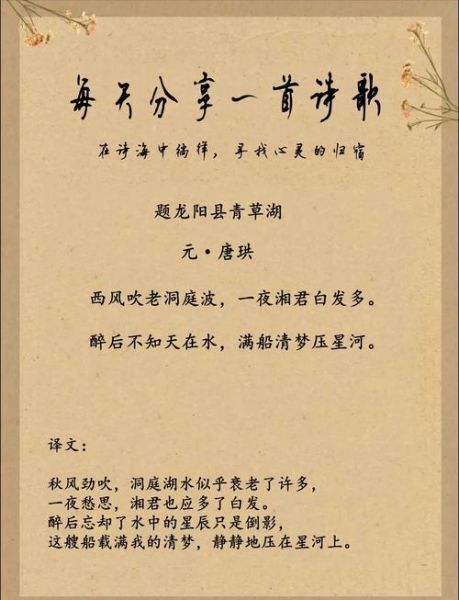 每天分享一首诗歌
在诗海中徜徉，寻找心灵的归宿
题龙阳县青草湖
元·唐珙
西风吹老洞庭波，一夜湘君白发多。
醉后不知天在水，满船清梦压星河。
译文：
秋风劲吹，洞庭湖水似乎衰老了许多，
一夜愁思，湘君也应多了白发。
醉后忘却了水中的星辰只是倒影，
这艘船载满我的清梦，静静地压在星河上。